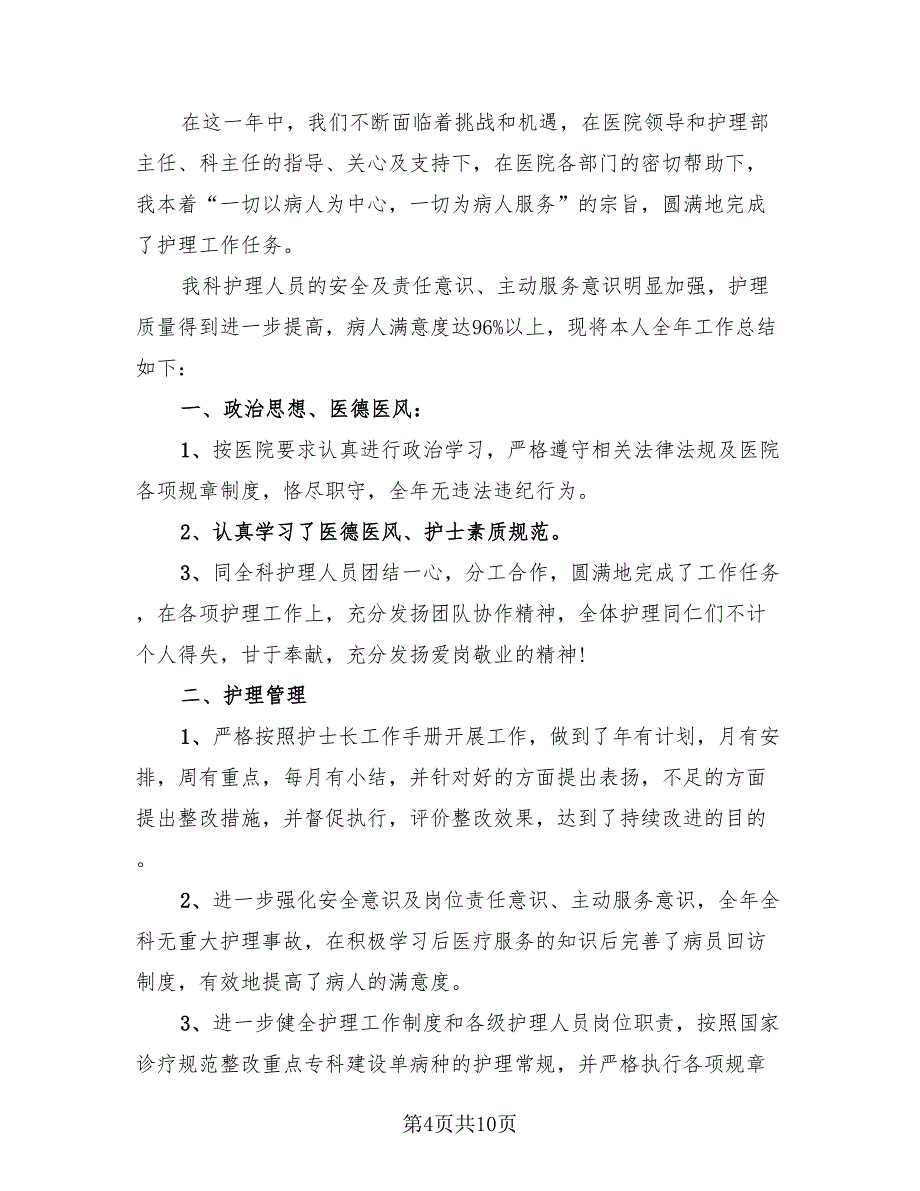 在这一年中，我们不断面临着挑战和机遇，在医院领导和护理部
主任、科主任的指导、关心及支持下，在医院各部门的密切帮助下，
我本着“一切以病人为中心，一切为病人服务”的宗旨，圆满地完成
了护理工作任务。
我科护理人员的安全及责任意识、主动服务意识明显加强，护理
质量得到进一步提高，病人满意度达96%以上，现将本人全年工作总结
如下：
一、政治思想、医德医风：
1、按医院要求认真进行政治学习，严格遵守相关法律法规及医院
各项规章制度，恪尽职守，全年无违法违纪行为。
2、认真学习了医德医风、护士素质规范。
3、同全科护理人员团结一心，分工合作，圆满地完成了工作任务
，在各项护理工作上，充分发扬团队协作精神，全体护理同仁们不计
个人得失，甘于奉献，充分发扬爱岗敬业的精神！
二、护理管理
1、严格按照护士长工作手册开展工作，做到了年有计划，月有安
排，周有重点，每月有小结，并针对好的方面提出表扬，不足的方面
提出整改措施，并督促执行，评价整改效果，达到了持续改进的目的
。
2、进一步强化安全意识及岗位责任意识、主动服务意识，全年全
科无重大护理事故，在积极学习后医疗服务的知识后完善了病员回访
制度，有效地提高了病人的满意度。
3、进一步健全护理工作制度和各级护理人员岗位职责，按照国家
诊疗规范整改重点专科建设单病种的护理常规，并严格执行各项规章
第4页共10页